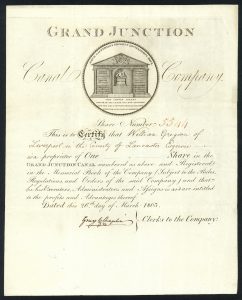 GRAND JUNCTION
Canal Company.
Share Number
This is to Certify that William Gregson of
Liverpool in the County of Lancaster Esquire is
a proprietor of One Share in the
GRAND JUNCTION CANAL numbered as above and Registered
in the Memorial Book of the Company (Subject to the Rules,
Regulations, and Orders of the said Company) and that
his Executors, Administrators and Assigns are entitled
to the profits and Advantages thereof.
Dated this day of March 1805.
Clerks to the Company.